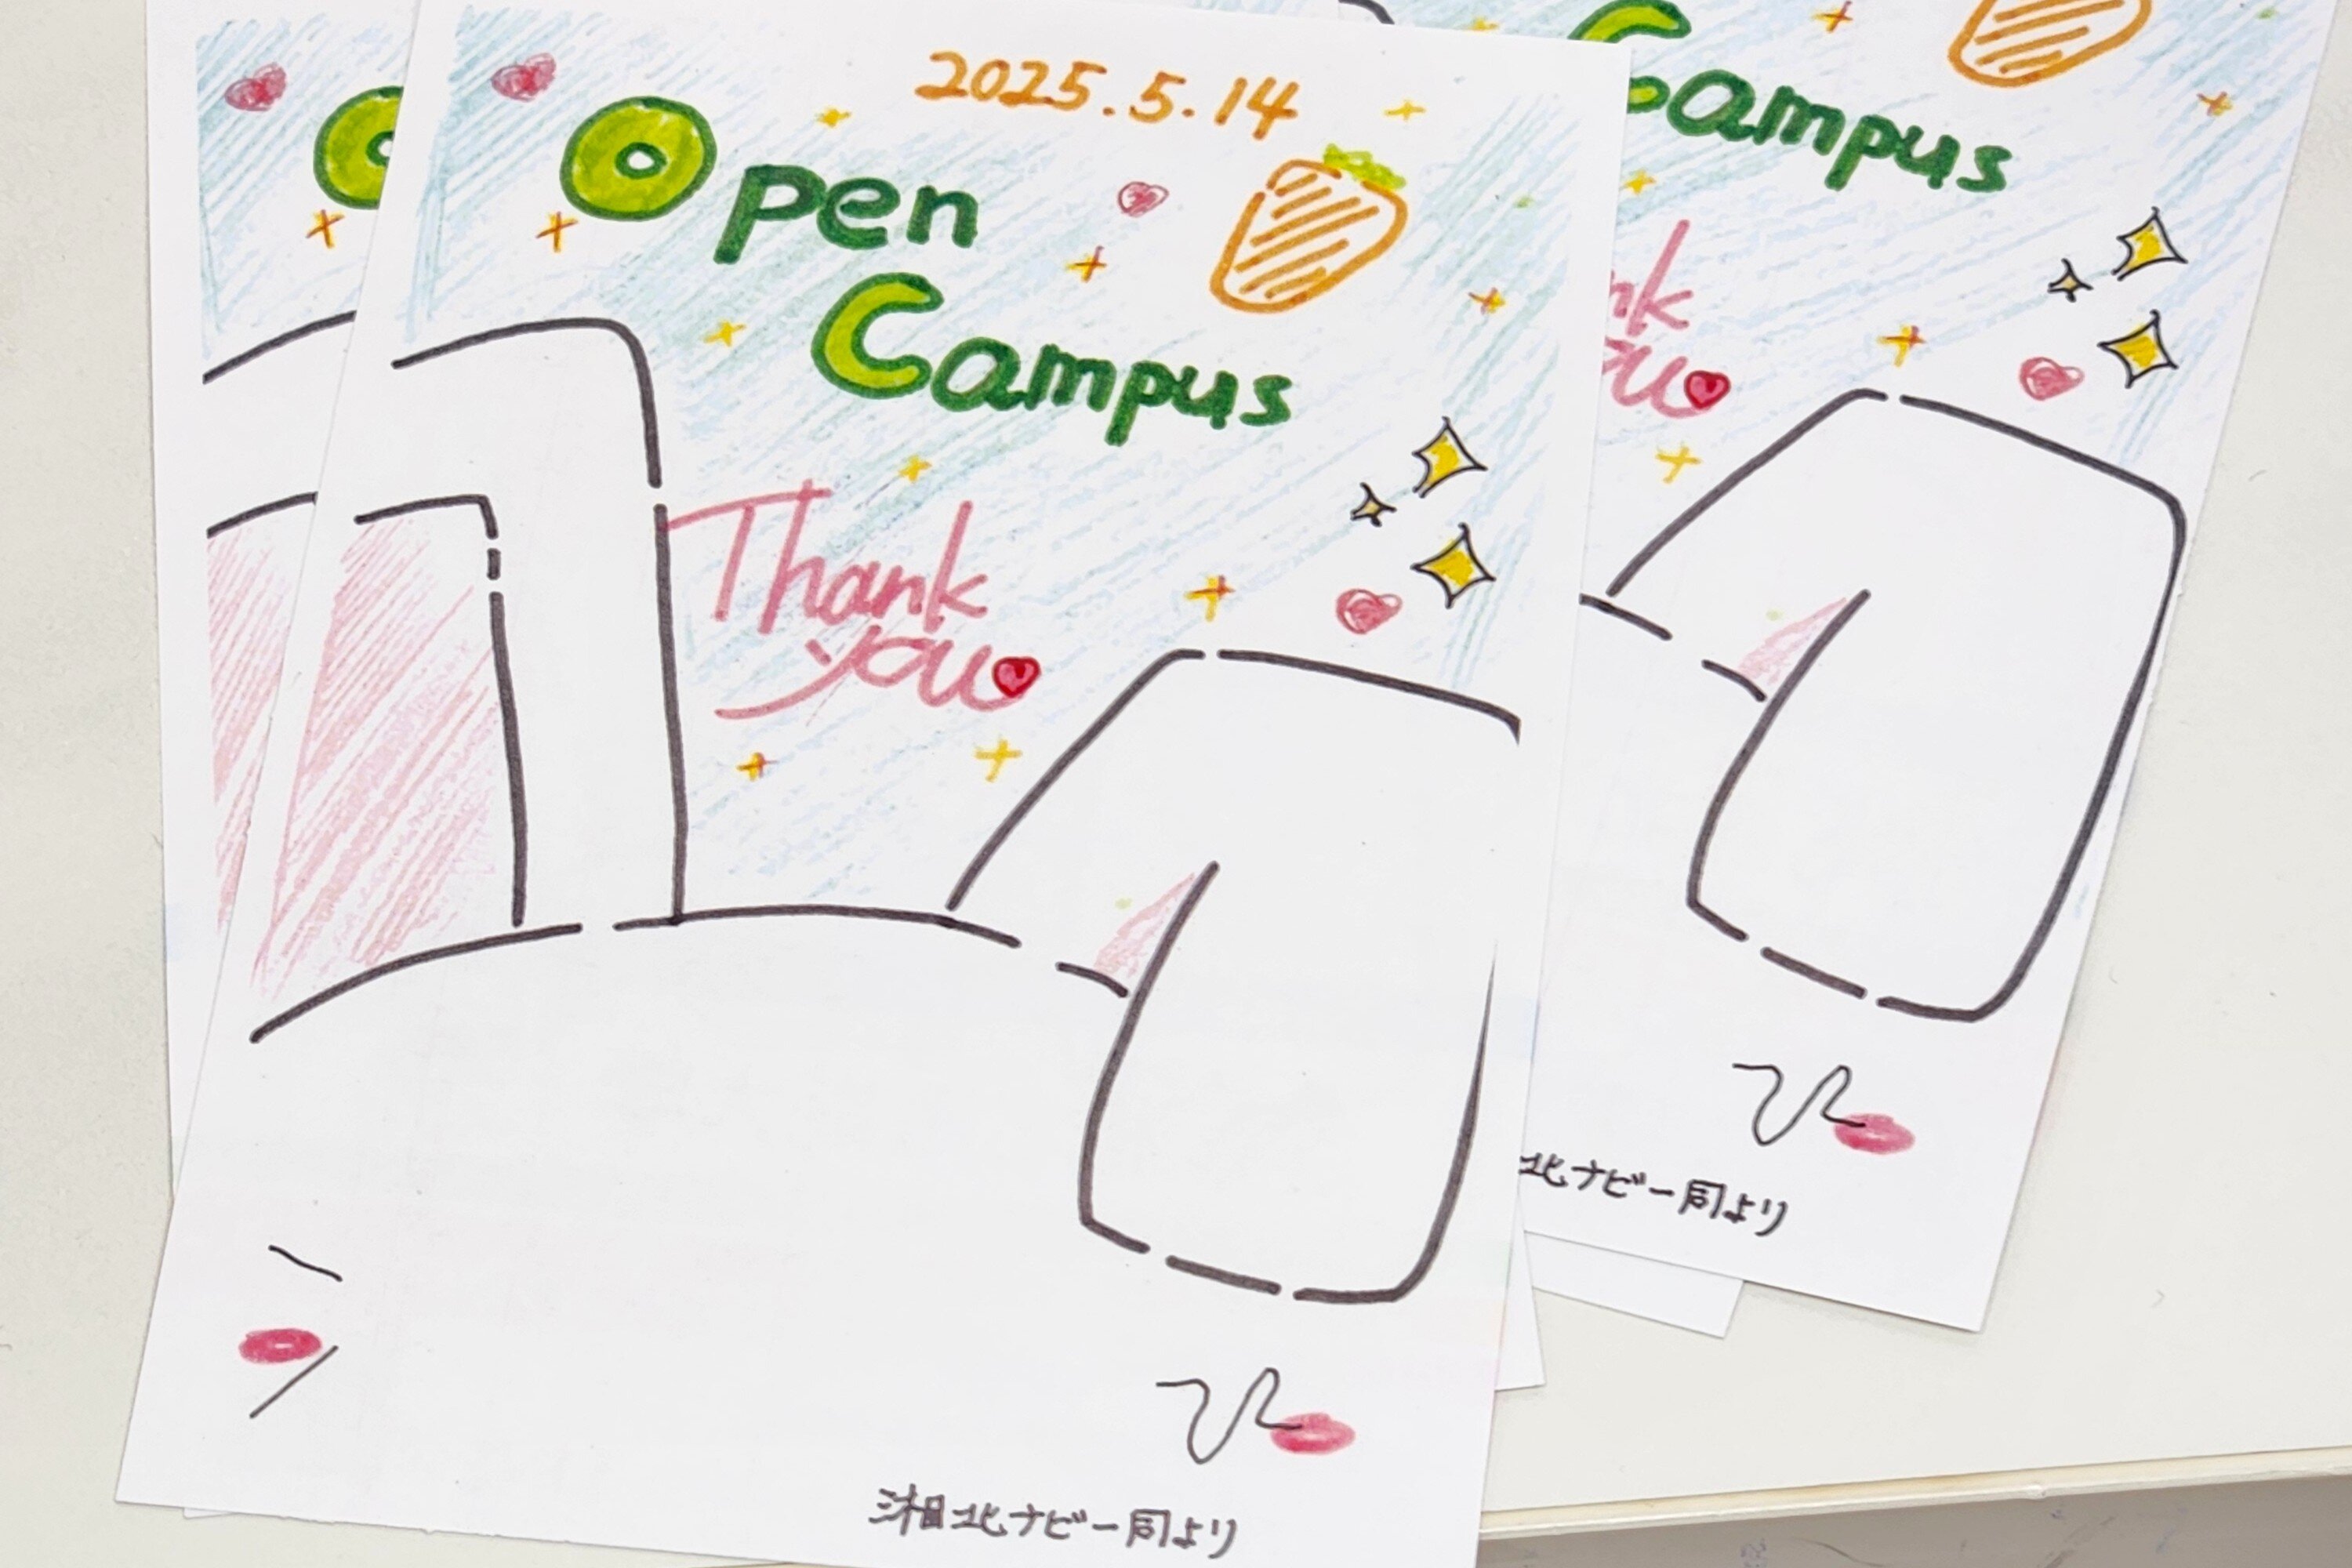 2025.5.14
Open
Campus
Thank
you
湘北ナビ一同より
Campus
nk
ou
北ナビ一同より